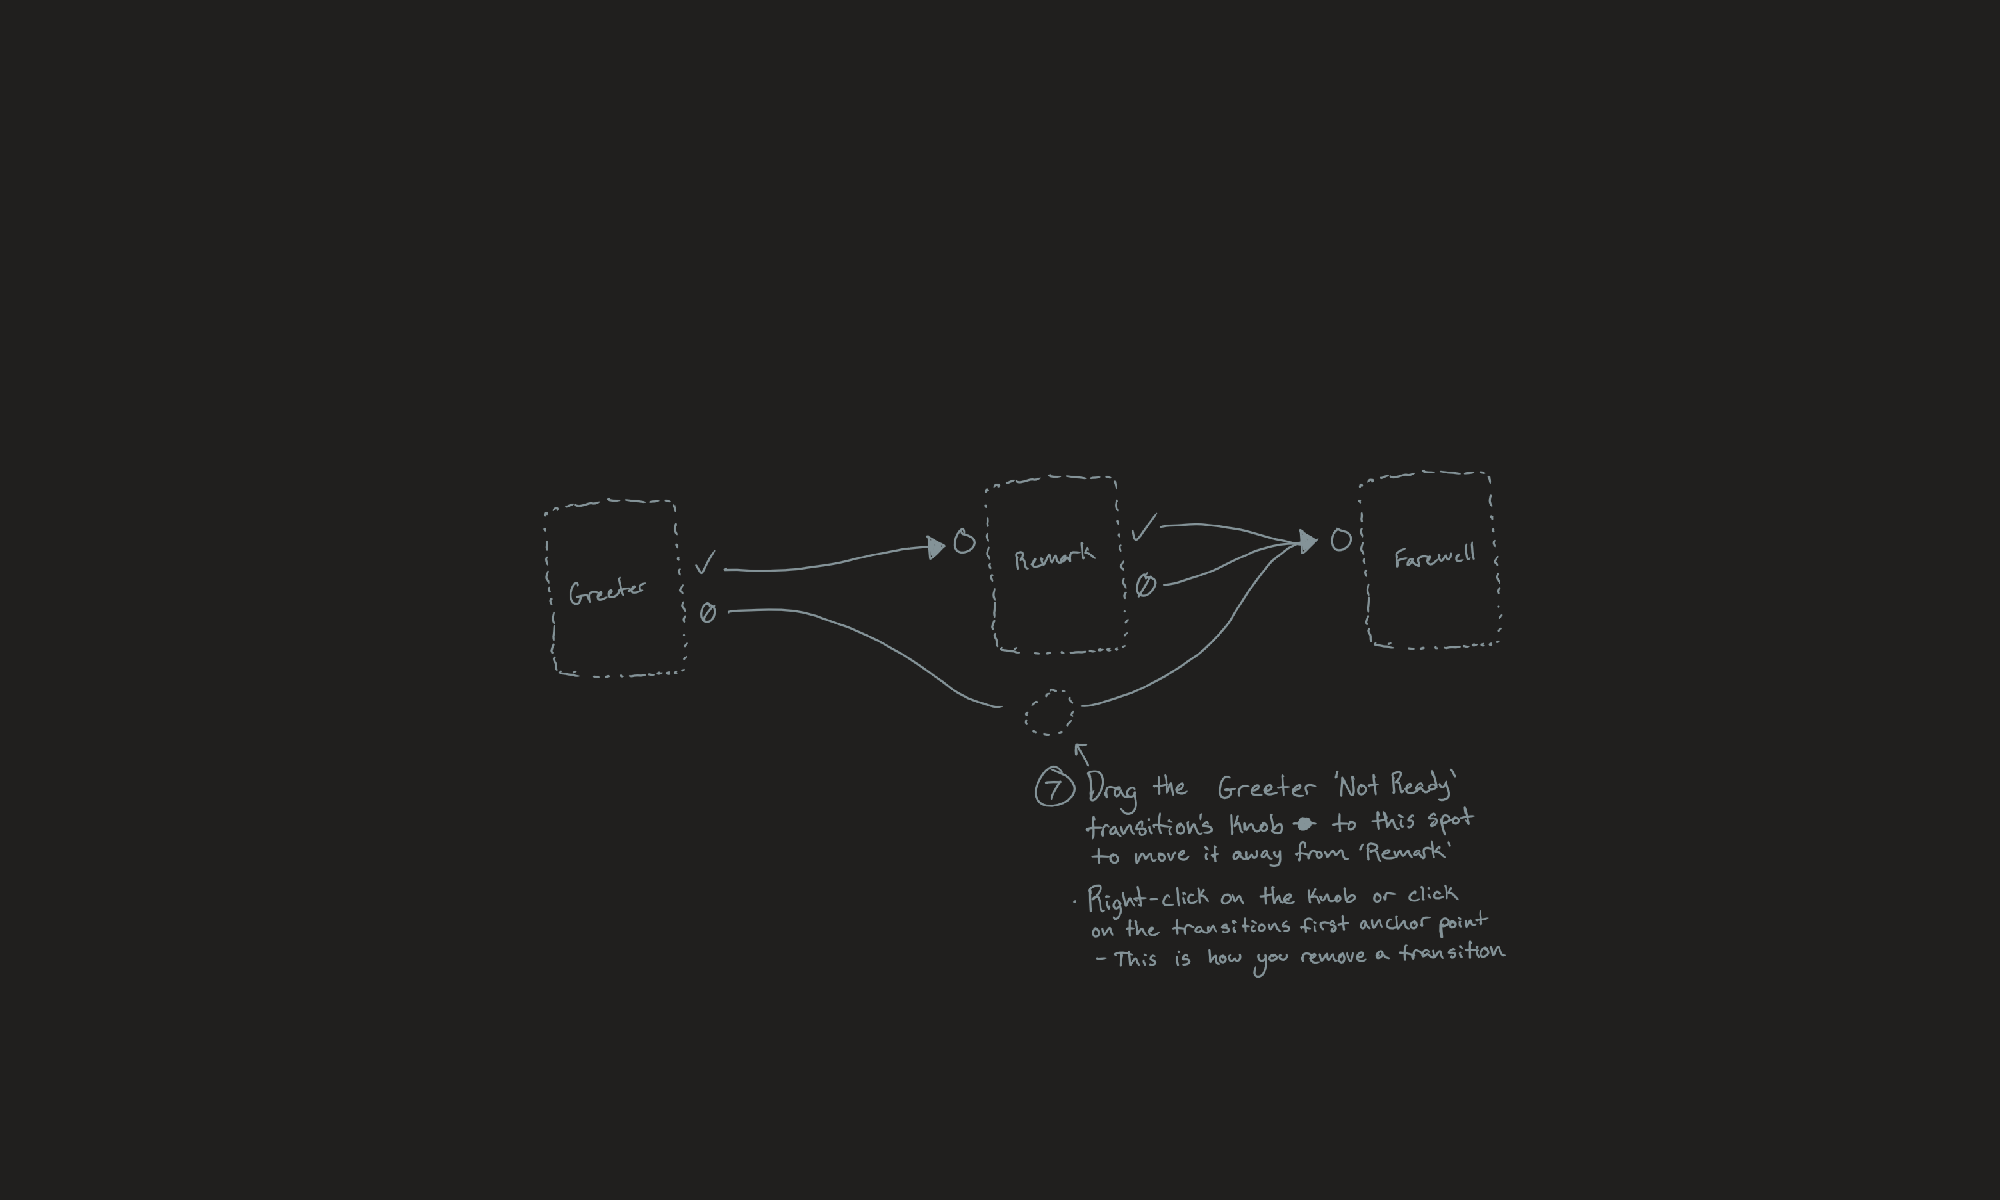 Greeter
Remark
Farewell
7 Drag the Greeter 'Not Ready'
transition's Knob to this spot
to move it away from 'Remark'
· Right-click on the Knob or click
on the transitions first anchor point
- This is how you remove a transition